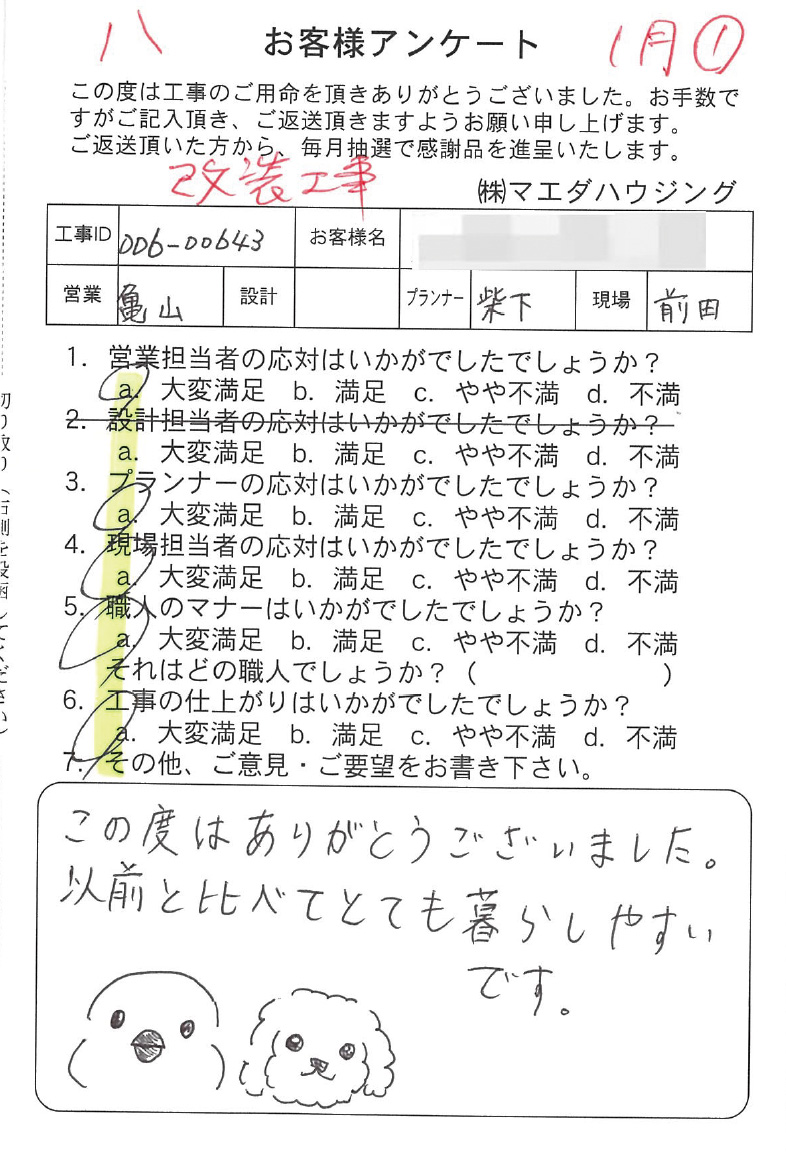 八
お客様アンケート
1月①
この度は工事のご用命を頂きありがとうございました。お手数で
すがご記入頂き、ご返送頂きますようお願い申し上げます。
ご返送頂いた方から、毎月抽選で感謝品を進呈いたします。
改装工事
㈱マエダハウジング
工事ID 006-00643 お客様名
営業 亀山 設計 プランナー 柴下 現場 前田
1. 営業担当者の応対はいかがでしたでしょうか？
a. 大変満足 b. 満足 c. やや不満 d. 不満
2. 設計担当者の応対はいかがでしたでしょうか？
a. 大変満足 b. 満足 c. やや不満 d. 不満
3. プランナーの応対はいかがでしたでしょうか？
a. 大変満足 b. 満足 c. やや不満 d. 不満
4. 現場担当者の応対はいかがでしたでしょうか？
a. 大変満足 b. 満足 c. やや不満 d. 不満
5. 職人のマナーはいかがでしたでしょうか？
a. 大変満足 b. 満足 c. やや不満 d. 不満
それはどの職人でしょうか？（ ）
6. 工事の仕上がりはいかがでしたでしょうか？
a. 大変満足 b. 満足 c. やや不満 d. 不満
7. その他、ご意見・ご要望をお書き下さい。
この度はありがとうございました。
以前と比べてとても暮らしやすい
です。